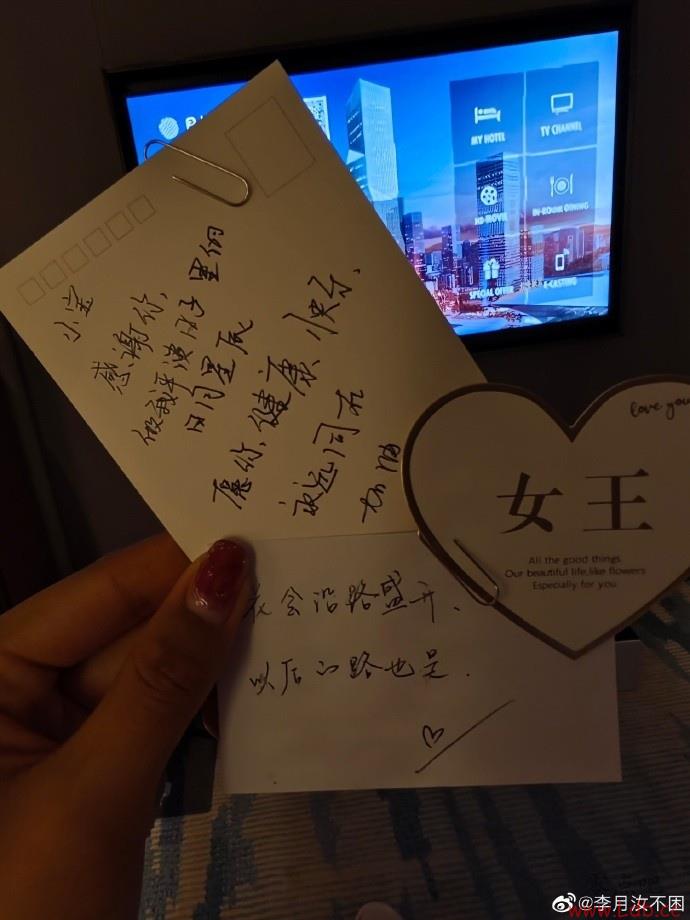 MY HOTEL
TV CHANNEL
HD MOVIE
IN-ROOM DINING
SPECIAL OFFER
E-CASTING
小宝
感谢你,
做我平淡日子里的
日月星辰
愿你、健康、快乐、
永远同在
加油
love you
女王
All the good things
Our beautiful life,like flowers
Especially for you
花会沿路盛开、
以后的路也是.
@李月汝不困